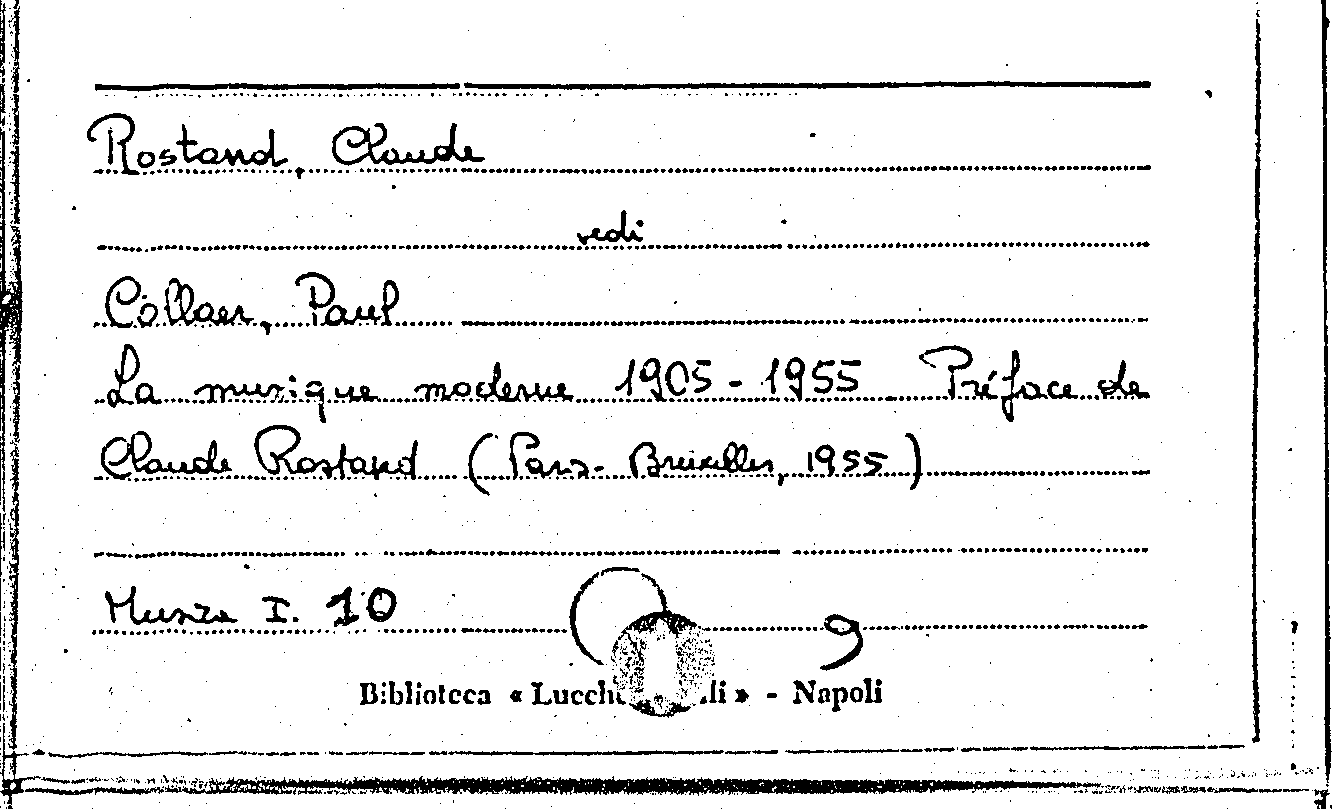 Rostand, Claude
vedi
Collaer, Paul
La musique moderne 1905-1955 Préface de
Claude Rostand (Paris-Bruxelles, 1955)
Musica I. 10
9
Biblioteca « » - Napoli